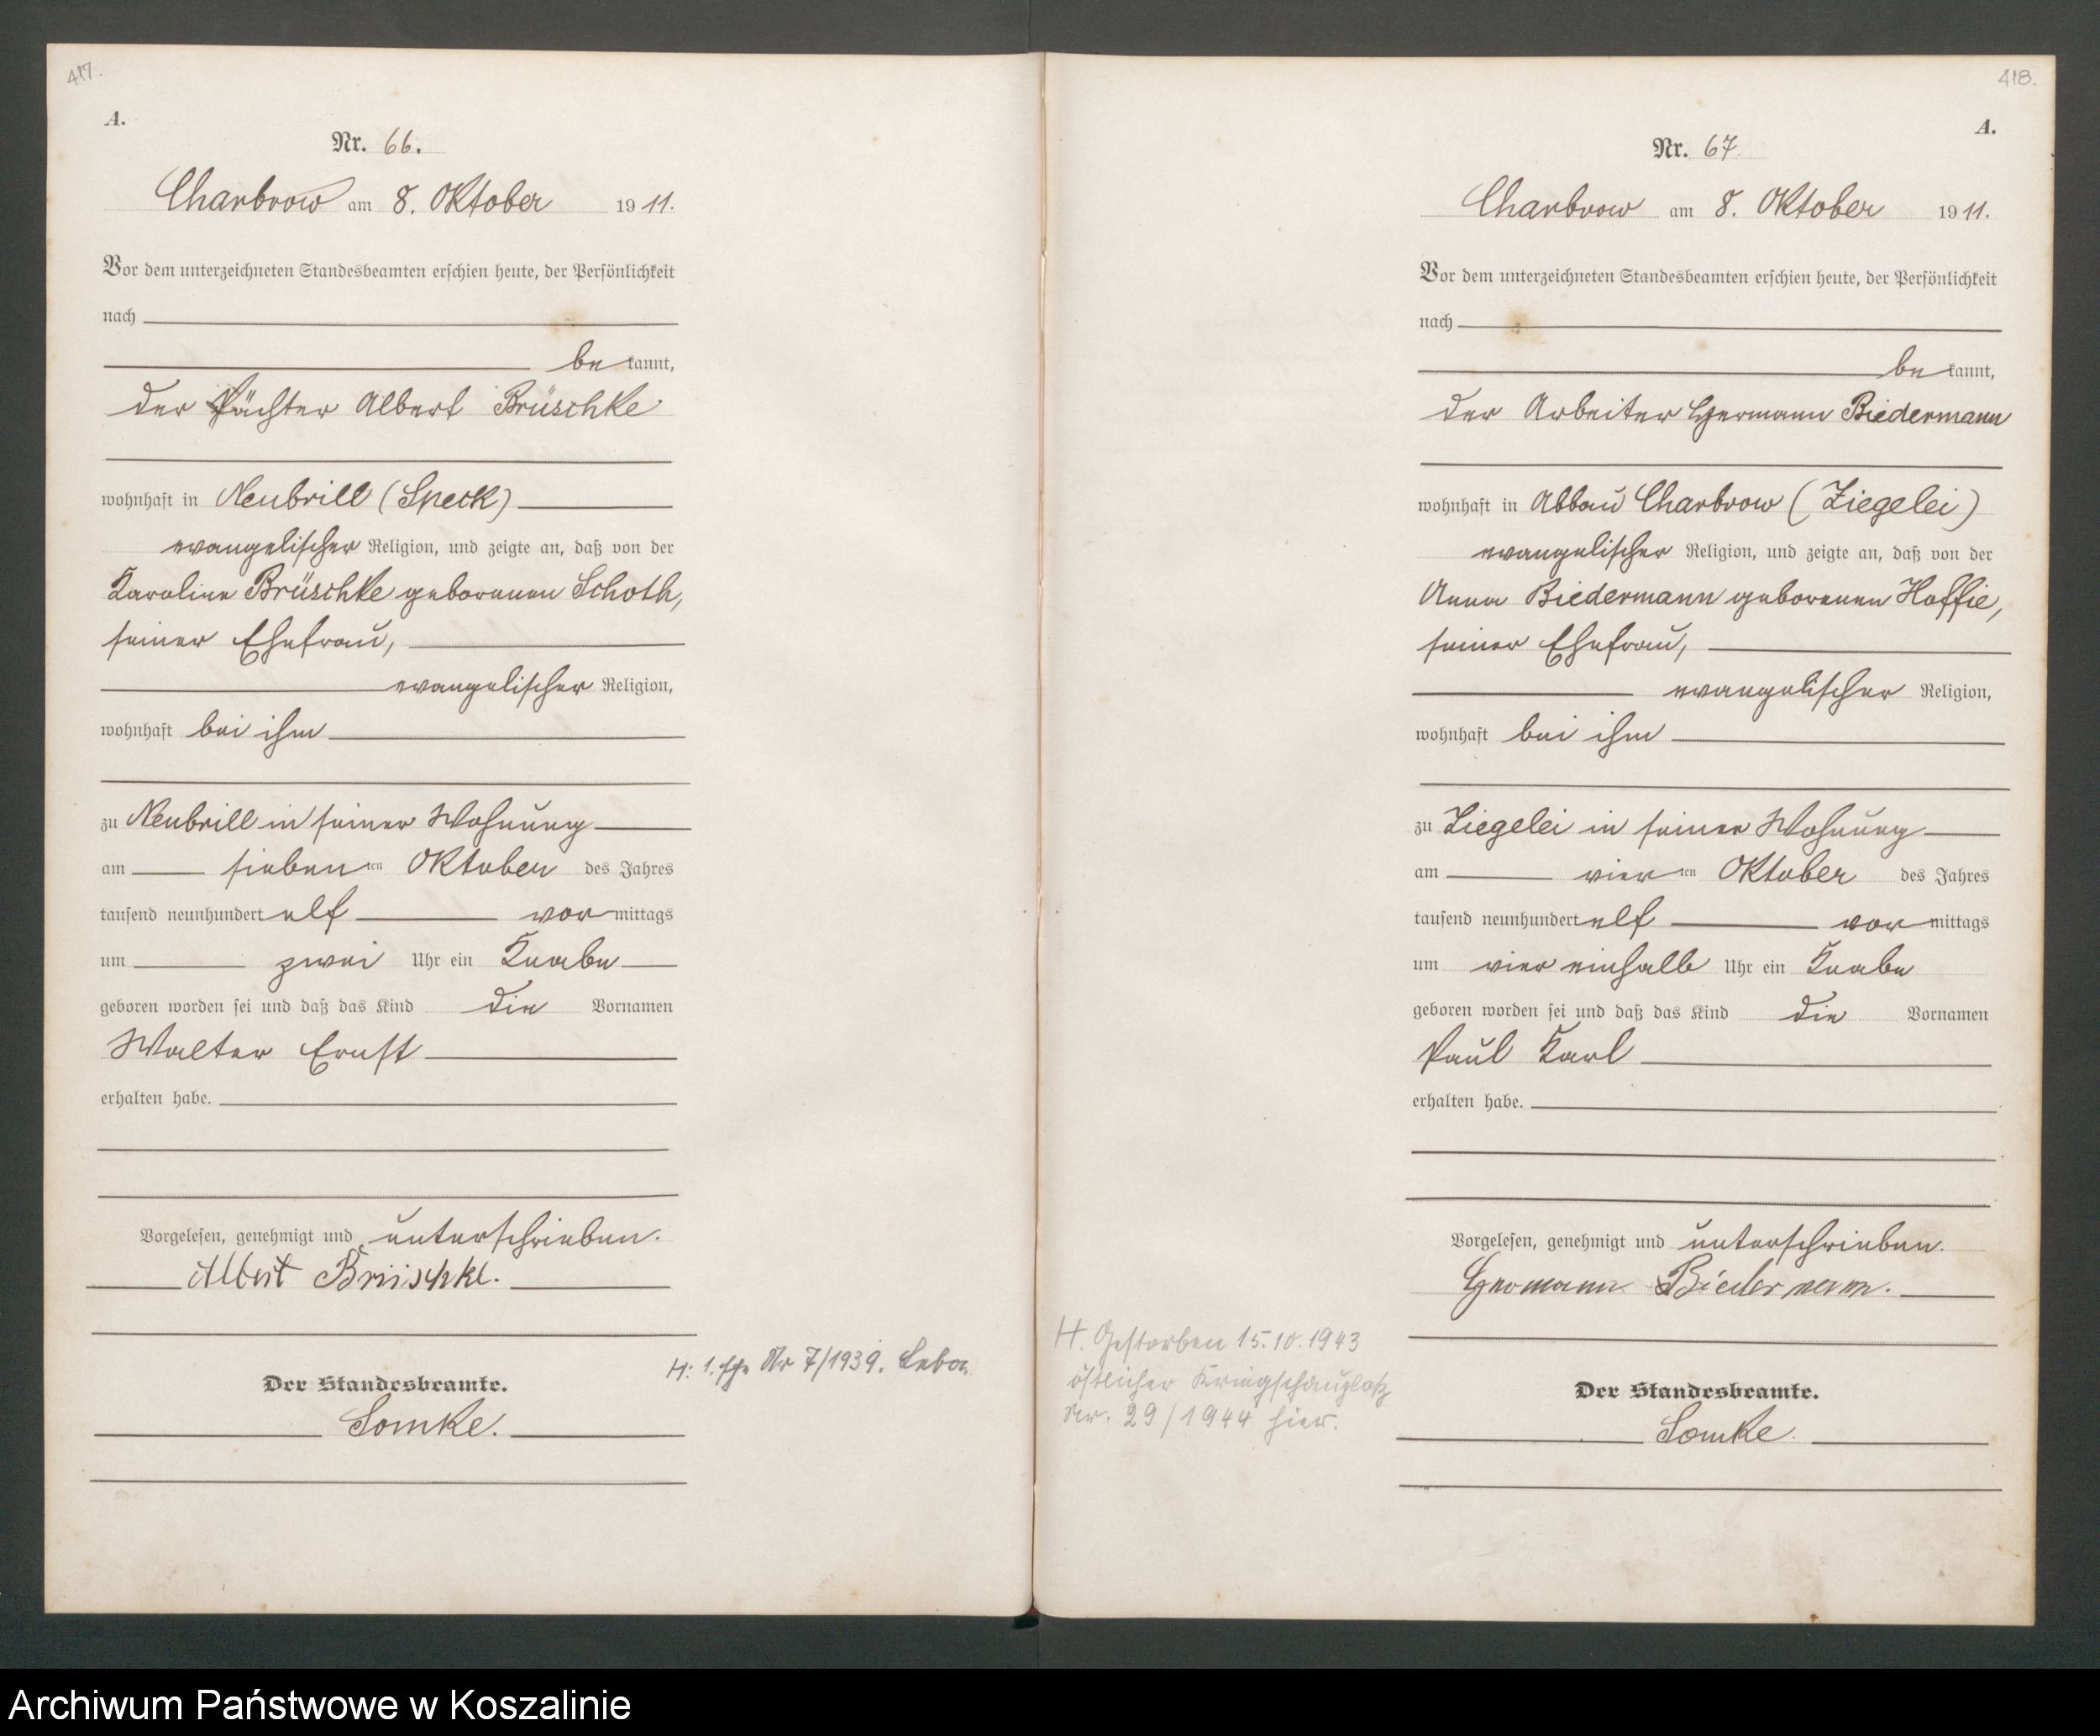 417.
A.
Nr. 66.
Charbrow am 8. Oktober 1911.
Vor dem unterzeichneten Standesbeamten erschien heute, der Persönlichkeit
nach
be kannt,
der Pächter Albert Brüschke
wohnhaft in Neubrill (Speck)
evangelischer Religion, und zeigte an, daß von der
Karoline Brüschke geborenen Schoth,
seiner Ehefrau,
evangelischer Religion,
wohnhaft bei ihm
zu Neubrill in seiner Wohnung
am siebenten Oktober des Jahres
tausend neunhundert elf vor mittags
um zwei Uhr ein Knabe
geboren worden sei und daß das Kind die Vornamen
Walter Ernst
erhalten habe.
Vorgelesen, genehmigt und unterschrieben.
Albert Brüschke.
H: 1. Nr 7/1939. Leba.
Der Standesbeamte.
Lomke.
418.
A.
Nr. 67
Charbrow am 8. Oktober 1911.
Vor dem unterzeichneten Standesbeamten erschien heute, der Persönlichkeit
nach
be kannt,
der Arbeiter Hermann Biedermann
wohnhaft in Abbau Charbrow (Ziegelei)
evangelischer Religion, und zeigte an, daß von der
Anna Biedermann geborenen Hoffie,
seiner Ehefrau,
evangelischer Religion,
wohnhaft bei ihm
zu Ziegelei in seiner Wohnung
am vierten Oktober des Jahres
tausend neunhundert elf vor mittags
um vier einhalb Uhr ein Knabe
geboren worden sei und daß das Kind die Vornamen
Paul Karl
erhalten habe.
Vorgelesen, genehmigt und unterschrieben.
Hermann Biedermann.
H. Gestorben 15.10.1943
östlicher Kriegschauplatz
Nr. 29/1944 hier.
Der Standesbeamte.
Lomke.
Archiwum Państwowe w Koszalinie